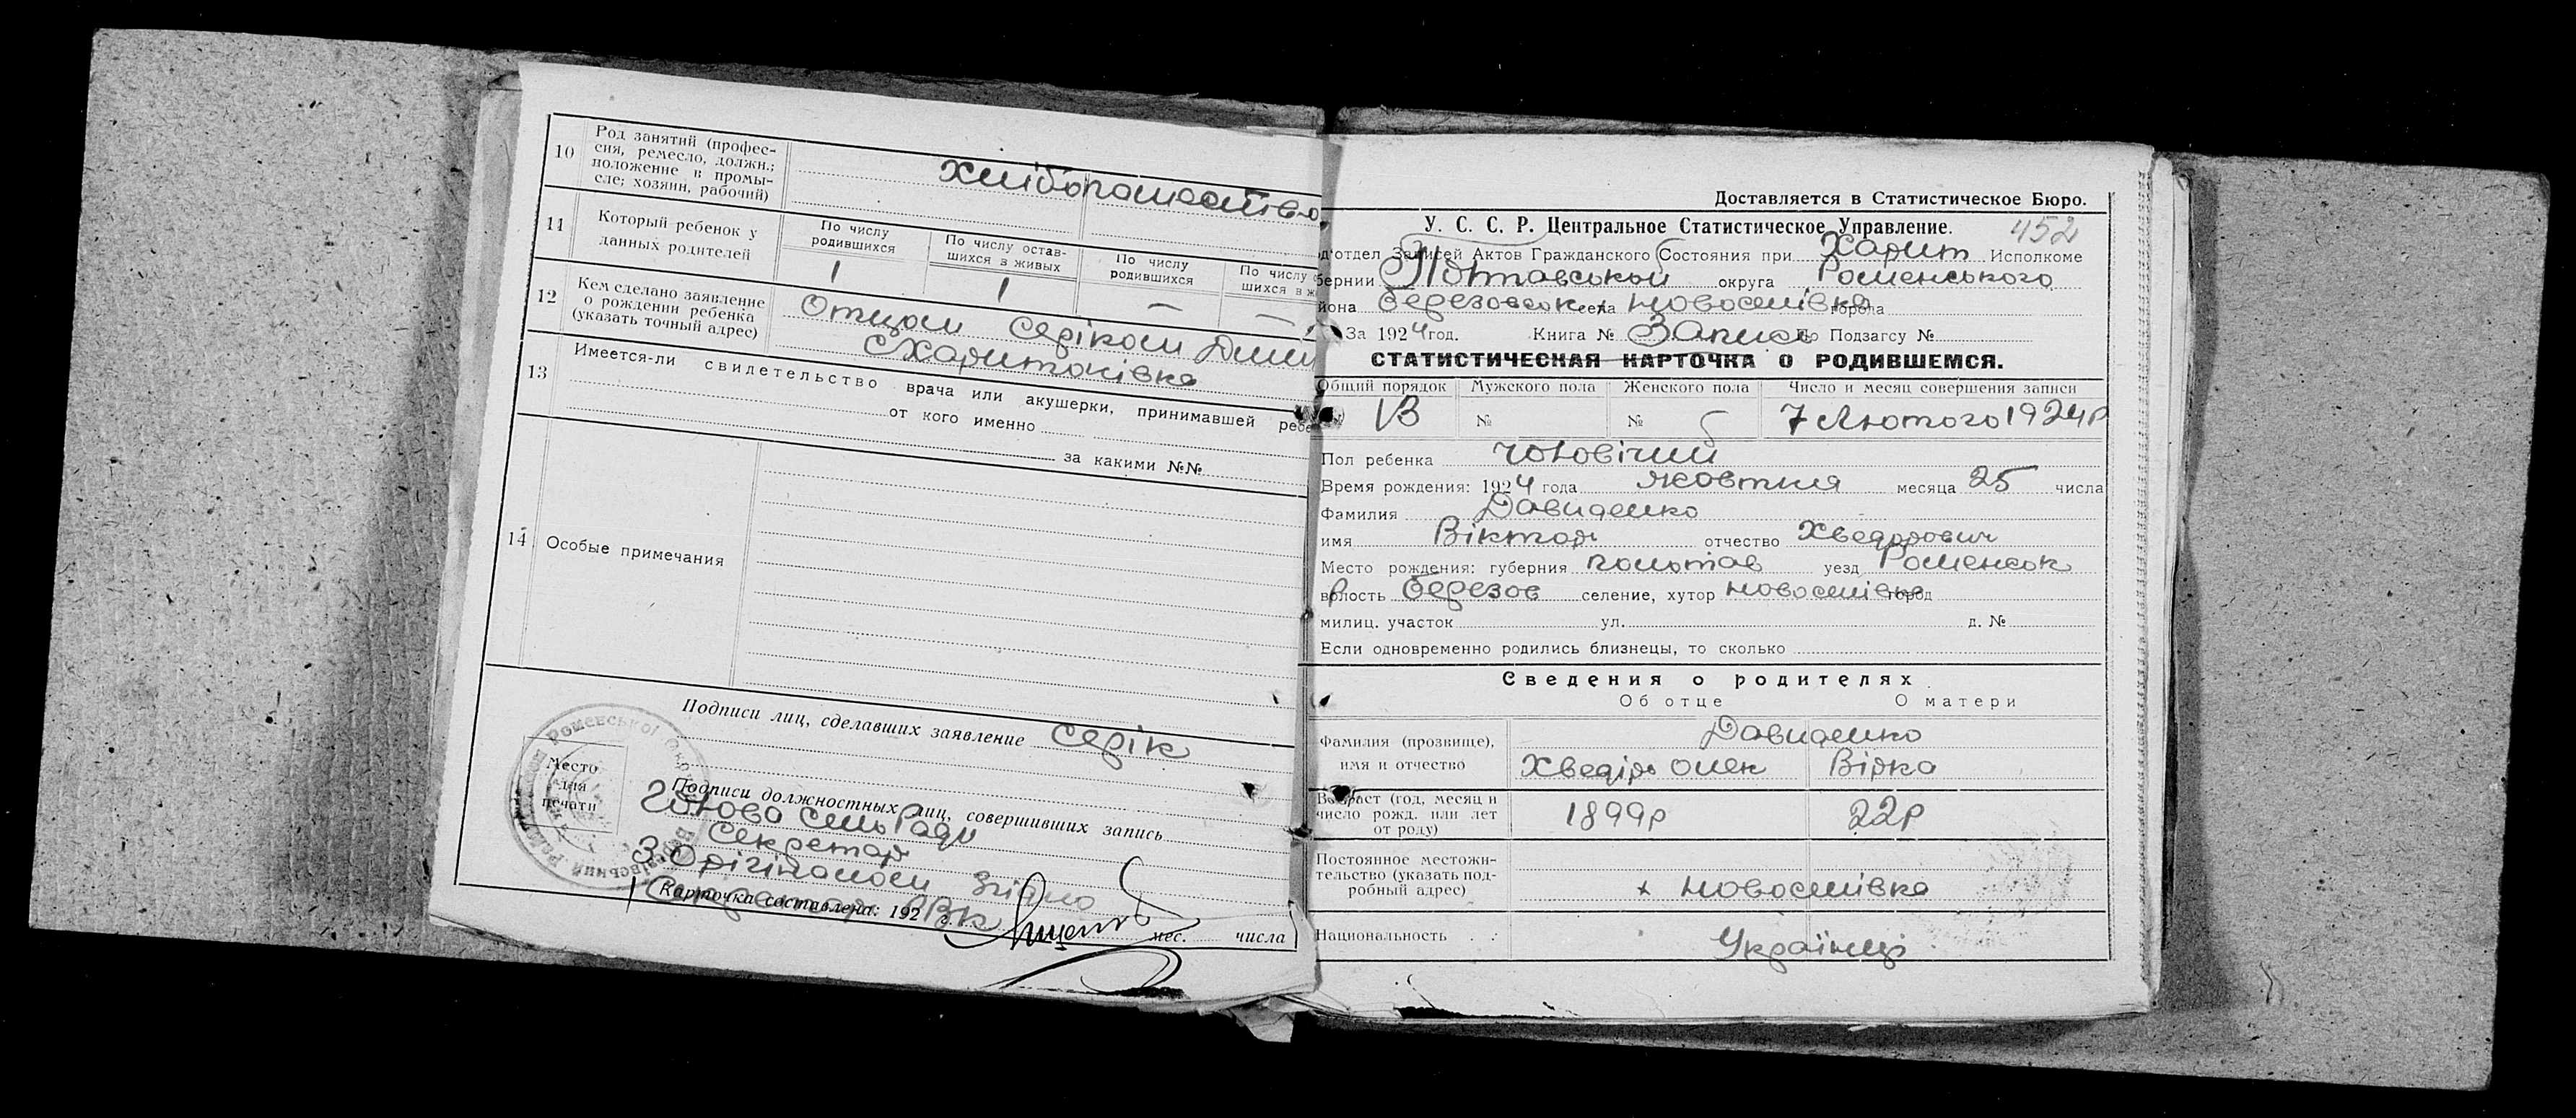 10
Род занятий (профес-
сия, ремесло, должн.;
положение в промы-
сле; хозяин, рабочий)
Хлібопашество
11
Который ребенок у
данных родителей
По числу
родившихся
По числу остав-
шихся в живых
По числу
родившихся
По числу
шихся в ж
1
1
—
—
12
Кем сделано заявление
о рождении ребенка
(указать точный адрес)
Отцом Серіком Дми
с Харитонівка
13
Имеется-ли свидетельство врача или акушерки, принимавшей ребе
от кого именно
за какими №№
14
Особые примечания
Подписи лиц, сделавших заявление Серік
Место
для
печати
Роменської
Подписи должностных лиц, совершивших запись
Голова сельРади
Секретар
З Орігіналом Згідно
Секретар РВК
Карточка составлена: 192 г. мес. числа
Доставляется в Статистическое Бюро.
У. С. С. Р. Центральное Статистическое Управление.
452
д'отдел Записей Актов Гражданского Состояния при Харит Исполкоме
бернии Полтавської округа Роменського
йона Березовск села Новоселівка города
За 1924 год. Книга № Запись По Подзагсу №
СТАТИСТИЧЕСКАЯ КАРТОЧКА О РОДИВШЕМСЯ.
Общий порядок Мужского пола Женского пола Число и месяц совершения записи
13 № № 7 Лютого 1924р
Пол ребенка чоловічий
Время рождения: 1924 года жовтня месяца 25 числа
Фамилия Давиденко
имя Віктор отчество Хведорович
Место рождения: губерния полтав уезд Роменськ
волость березов селение, хутор Новоселівка город
милиц. участок ул. д. №
Если одновременно родились близнецы, то сколько
Сведения о родителях
Об отце О матери
Фамилия (прозвище),
имя и отчество
Давиденко
Хведір Олек Вірка
Возраст (год, месяц и
число рожд. или лет
от роду)
1899р 22р
Постоянное местожи-
тельство (указать под-
робный адрес)
х Новоселівка
Национальность Українці